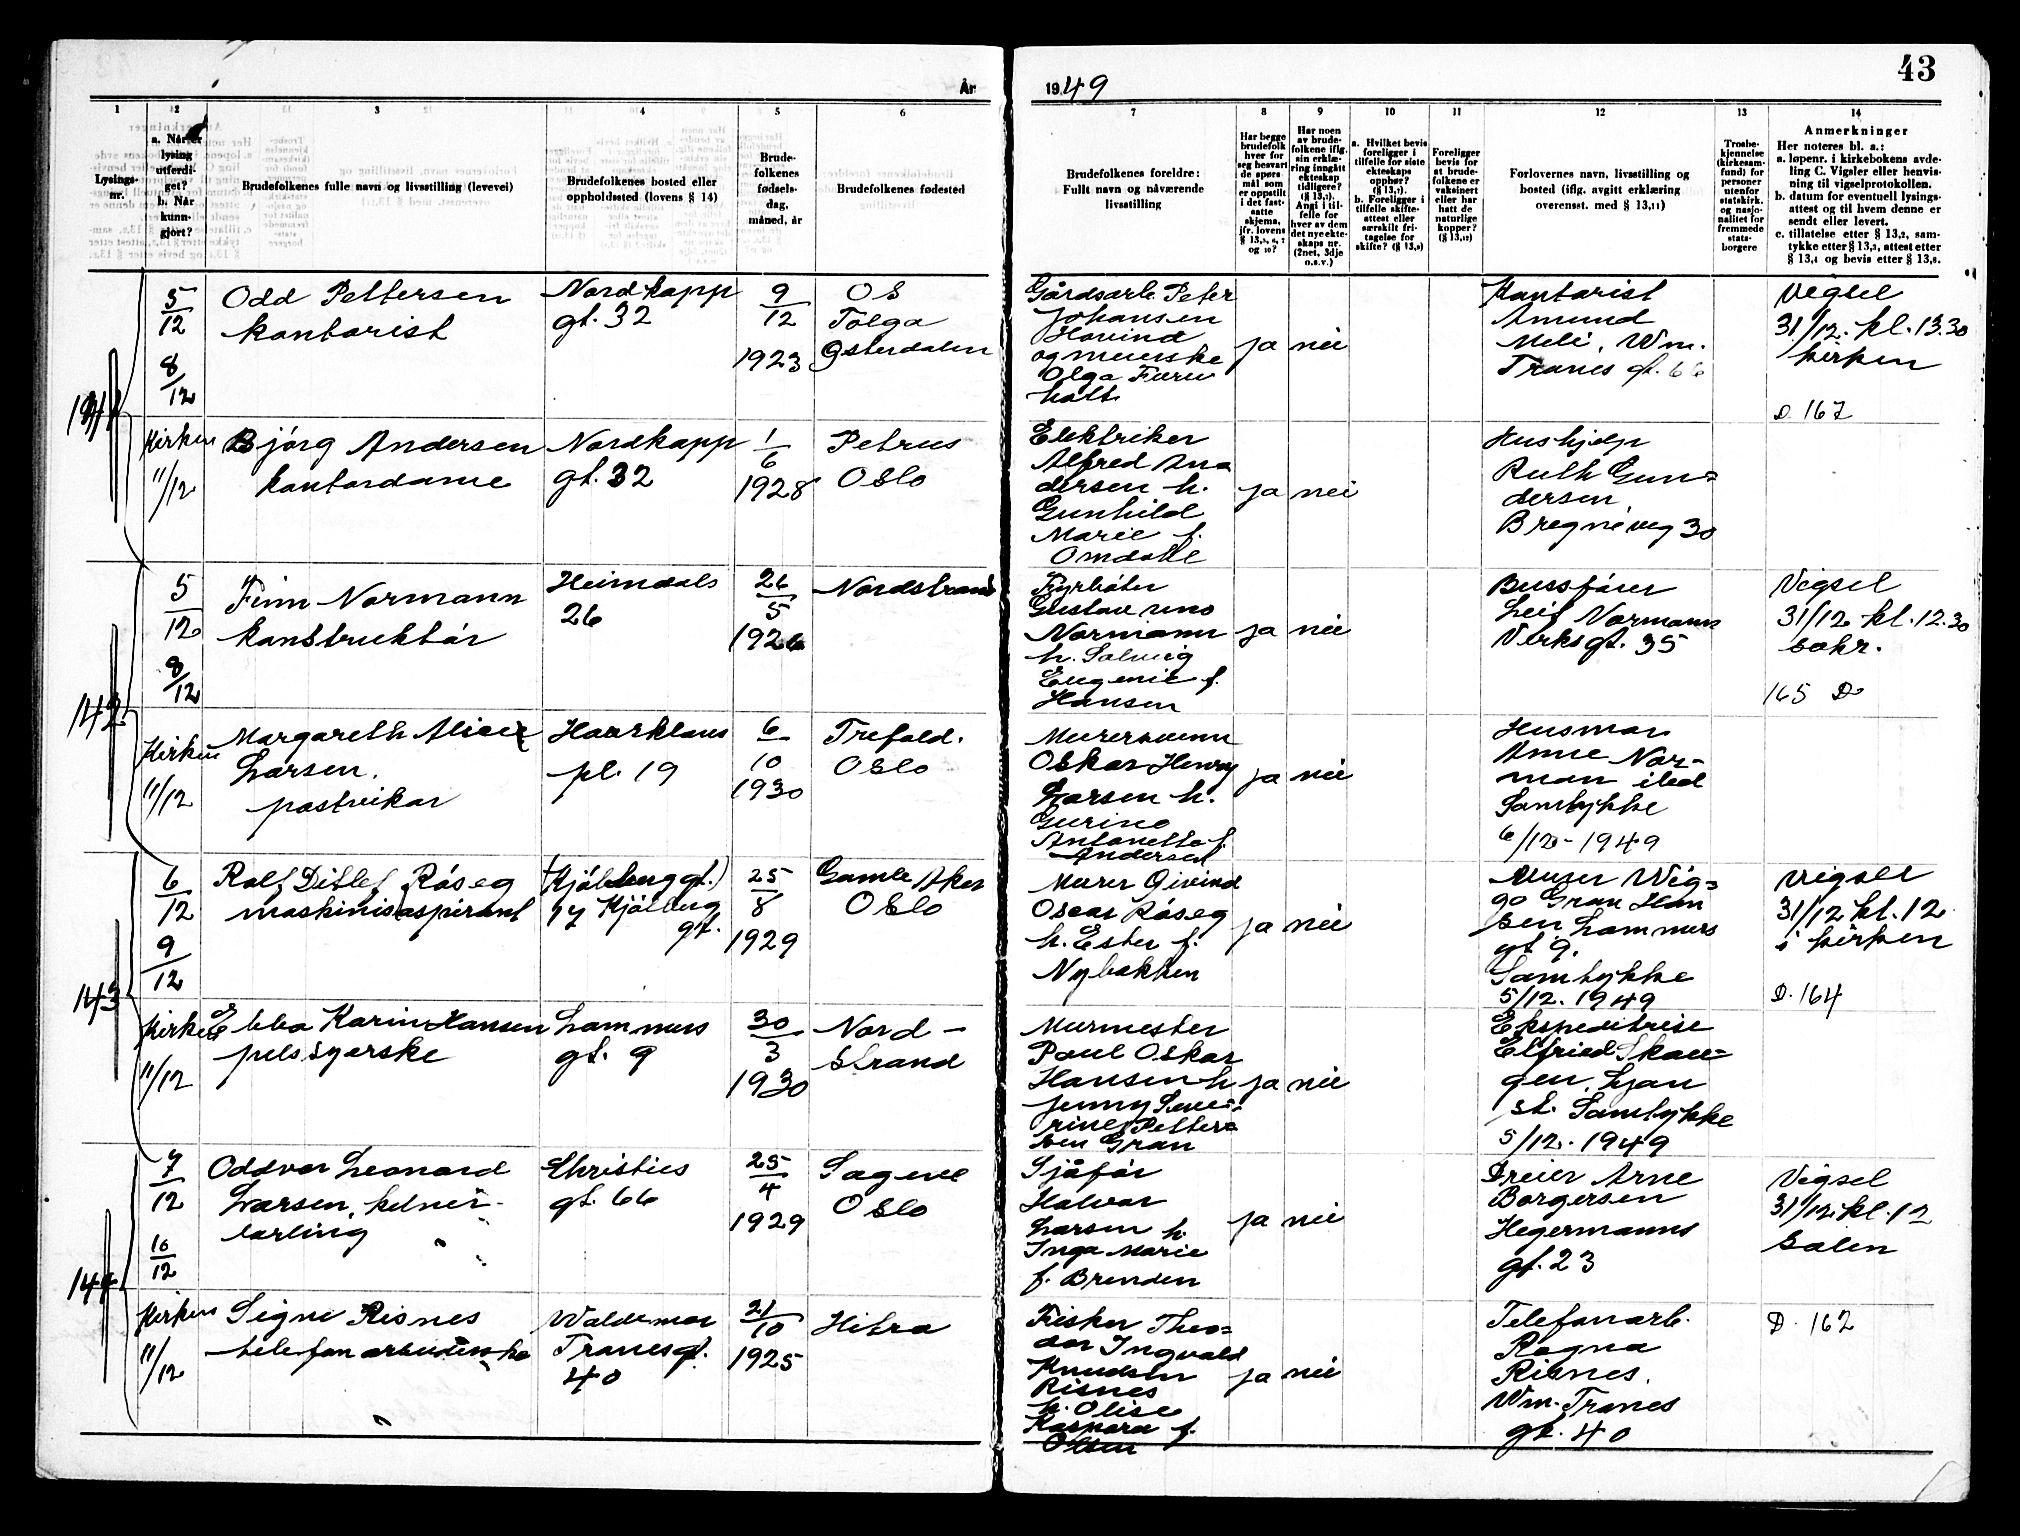 År
1949
43
1
2
3
4
5
6
7
8
9
10
11
12
13
14
Lysings-
nr.
a. Når er
lysing
utferdi-
get?
b. Når
kunn-
gjort?
Brudefolkenes fulle navn og livsstilling (levevei)
Brudefolkenes bosted eller
oppholdssted (lovens § 14)
Brude-
folkenes
fødsels-
dag,
måned, år
Brudefolkenes fødested
Brudefolkenes foreldre:
Fullt navn og nåværende
livsstilling
Har begge
brudefolk
hver for
seg besvart
de spørs-
mål som
er oppstilt
i det fast-
satte
skjema,
jfr. lovens
og 10?
Har noen
av brude-
folkene iflg.
sin erklæ-
ring inngått
ekteskap
tidligere?
(§ 13,3).
Angi i til-
felle for
hver av dem
det nye ekte-
skaps nr.
(2net, 3dje
o.s.v.)
a. Hvilket bevis
foreligger i
tilfelle for siste
ekteskaps
opphør?
b. Foreligger i
tilfelle skifte-
attest eller
særskilt fri-
tagelse for
skifte?
Foreligger
bevis for
at brude-
folkene er
vaksinert
eller har
hatt de
naturlige
kopper?
Forlovernes navn, livsstilling og
bosted (iflg. avgitt erklæring
overensst. med § 13,11)
Trosbe-
kjennelse
(kirkesam-
fund) for
personer
utenfor
statskirk.
og nasjo-
nalitet for
fremmede
stats-
borgere
Anmerkninger
Her noteres bl. a.:
a. løpenr. i kirkebokens avde-
ling C. Vigsler eller henvis-
ning til vigselprotokollen.
b. datum for eventuell lysings-
attest og til hvem denne er
sendt eller levert.
c. tillatelse etter § 13,2, sam-
tykke etter § 13,3, attest etter
§ 13,4 og bevis etter § 13,8.
141
5/12
8/12
Odd Pettersen
kontorist
Nordkapp
gt. 32
9/12
1923
Os
Tolga
Østerdalen
Gårdsarb. Peter
Johansen
Hovind
og meierske
Olga Furu
holt
ja
nei
Kontorist
Amund
Meli, Wm.
Tranes gt. 66
Vigsel
31/12. kl. 13.30
kirken
D. 167
Kirken
11/12
Bjórg Andersen
kontordame
Nordkapp
gt. 32
1/6
1928
Petrus
Oslo
Elektriker
Alfred An=
dersen h.
Gunhild
Marie f.
Omdahl
ja
nei
Hushjelp
Ruth Gun=
dersen,
Bregneveg 30
142
5/12
8/12
Finn Normann
konstruktór
Heimdals
26
26/5
1926
Nordstrand
Fyrbóter
Gustav Uno
Normann
h. Solveig
Eugenie f.
Hansen
ja
nei
Bussfórer
Leif Normann
Verksgt. 35
Vigsel
31/12 kl. 12.30
sakr.
165 D
Kirken
11/12
Margareth Alice
Larsen.
postvikar
Haarklaus
pl. 19
6/10
1930
Trefold.
Oslo
Murersvenn
Oskar Henry
Larsen h.
Gurine
Antonette f.
Andersen
ja
nei
Husmor
Anne Nor-
man
Samtykke
6/12 - 1949
143
6/12
9/12
Rolf Ditlef Róseg
maskinistaspirant
(Kjólberggt.)
17 Kjólberg
gt.
25/8
1929
Gamle Aker
Oslo
Murer Øivind
Oscar Róseg
h. Ester f.
Nybakken
ja
nei
Murer Wig=
go Gran Han
sen Lammers
gt 9.
Samtykke
5/12. 1949
Vigsel
31/12 kl. 12
i kirken
D. 164
Kirken
11/12
Ebba Karin Hansen
pelssyerske
Lammers
gt. 9
30/3
1930
Nord-
strand
Murmester
Paul Oskar
Hansen h
Jenny Seve=
rine Petter=
sen Gran
ja
nei
Ekspeditrise
Elfried Skau=
gen, Ljan
st. Samtykke
5/12. 1949
144
7/12
10/12
Oddvar Leonard
Larsen, kelner-
lærling
Christies
gt. 66
25/4
1929
Sagene
Oslo
Sjåfór
Halvor
Larsen h.
Inga Marie
f. Brenden
ja
nei
Dreier Arne
Borgersen
Hegermanns
gt. 23
Vigsel
31/12. kl. 12
Salen
D. 162
Kirken
11/12
Signe Risnes
telefonarbeiderske
Waldemar
Tranesgt.
40
21/10
1925
Hitra
Fisker Theo=
dor Ingvald
Knudsen
Risnes
h. Olise
Kaspara f.
Olsen
ja
nei
Telefonarb.
Ragna
Risnes.
Wm. Tranes
gt. 40